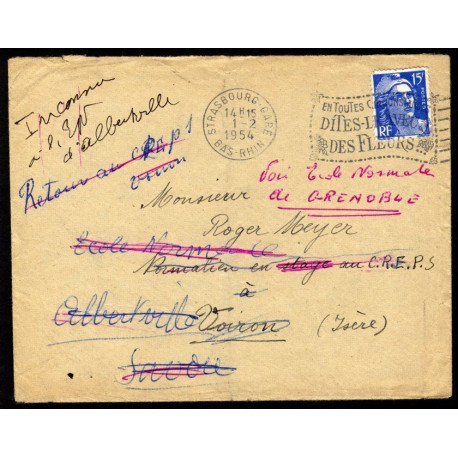 Inconnu
à l'EN
d'Albertville
Retour au C.R.E.P.S
Voiron
STRASBOURG-GARE
14H15
1-2
1954
BAS-RHIN
EN TOUTES
DITES-LE AVEC
DES FLEURS
15F
RF
Voir Ecole Normale
de GRENOBLE
Monsieur
Roger Meyer
Ecole Normale
Formation en stage au C.R.E.P.S
à
Albertville Voiron (Isère)
Savoie